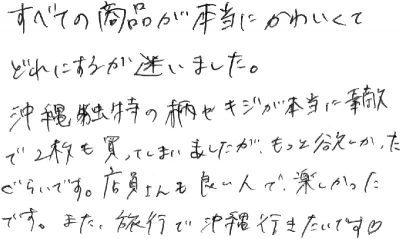 すべての商品が本当にかわいくて
どれにするか迷いました。
沖縄独特の柄やキジが本当に素敵
で2枚も買ってしまいましたが、もっと欲しかった
ぐらいです。店員さんも良い人で、楽しかった
です。また、旅行で沖縄行きたいです♡